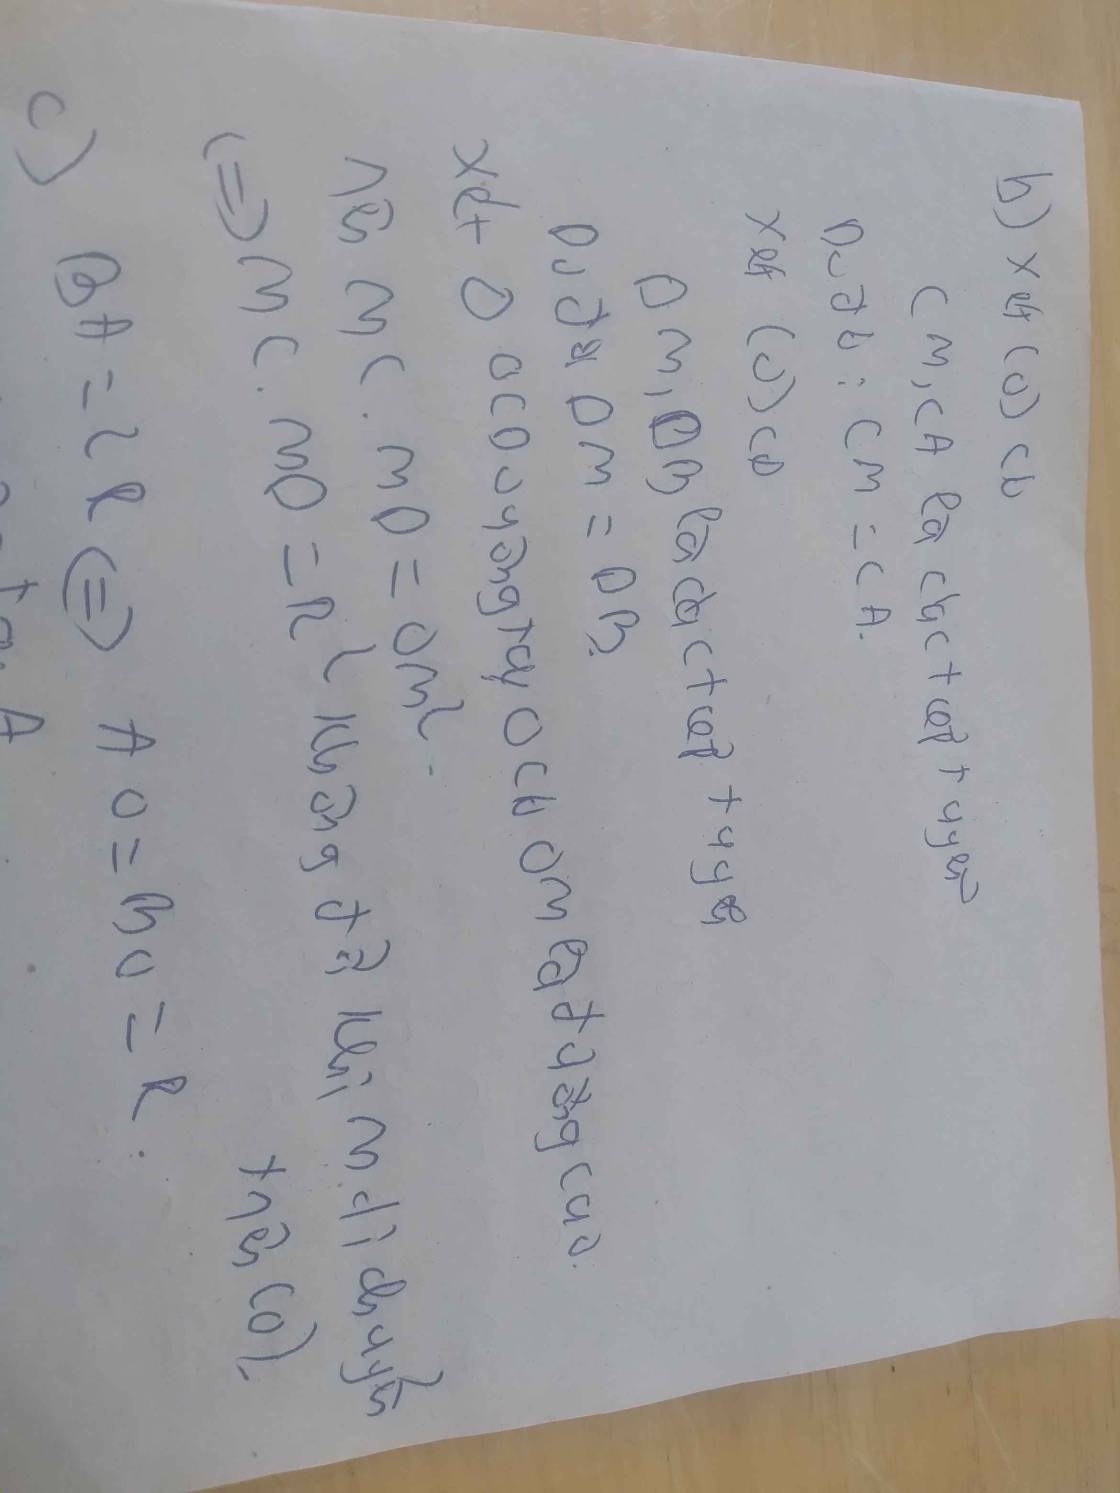 b) Xét (O) có
CM, CA là các tiếp tuyến
Do đó: CM = CA.
Xét (O) có
DM, DB là các tiếp tuyến
Do đó DM = DB
Xét Δ OCD vuông tại O có OM là đường cao.
nên MC. MD = OM².
(=) MC. MD = R² không đổi khi M di chuyển
trên (O).
c) BA = 2R (=) AO = BO = R.
A